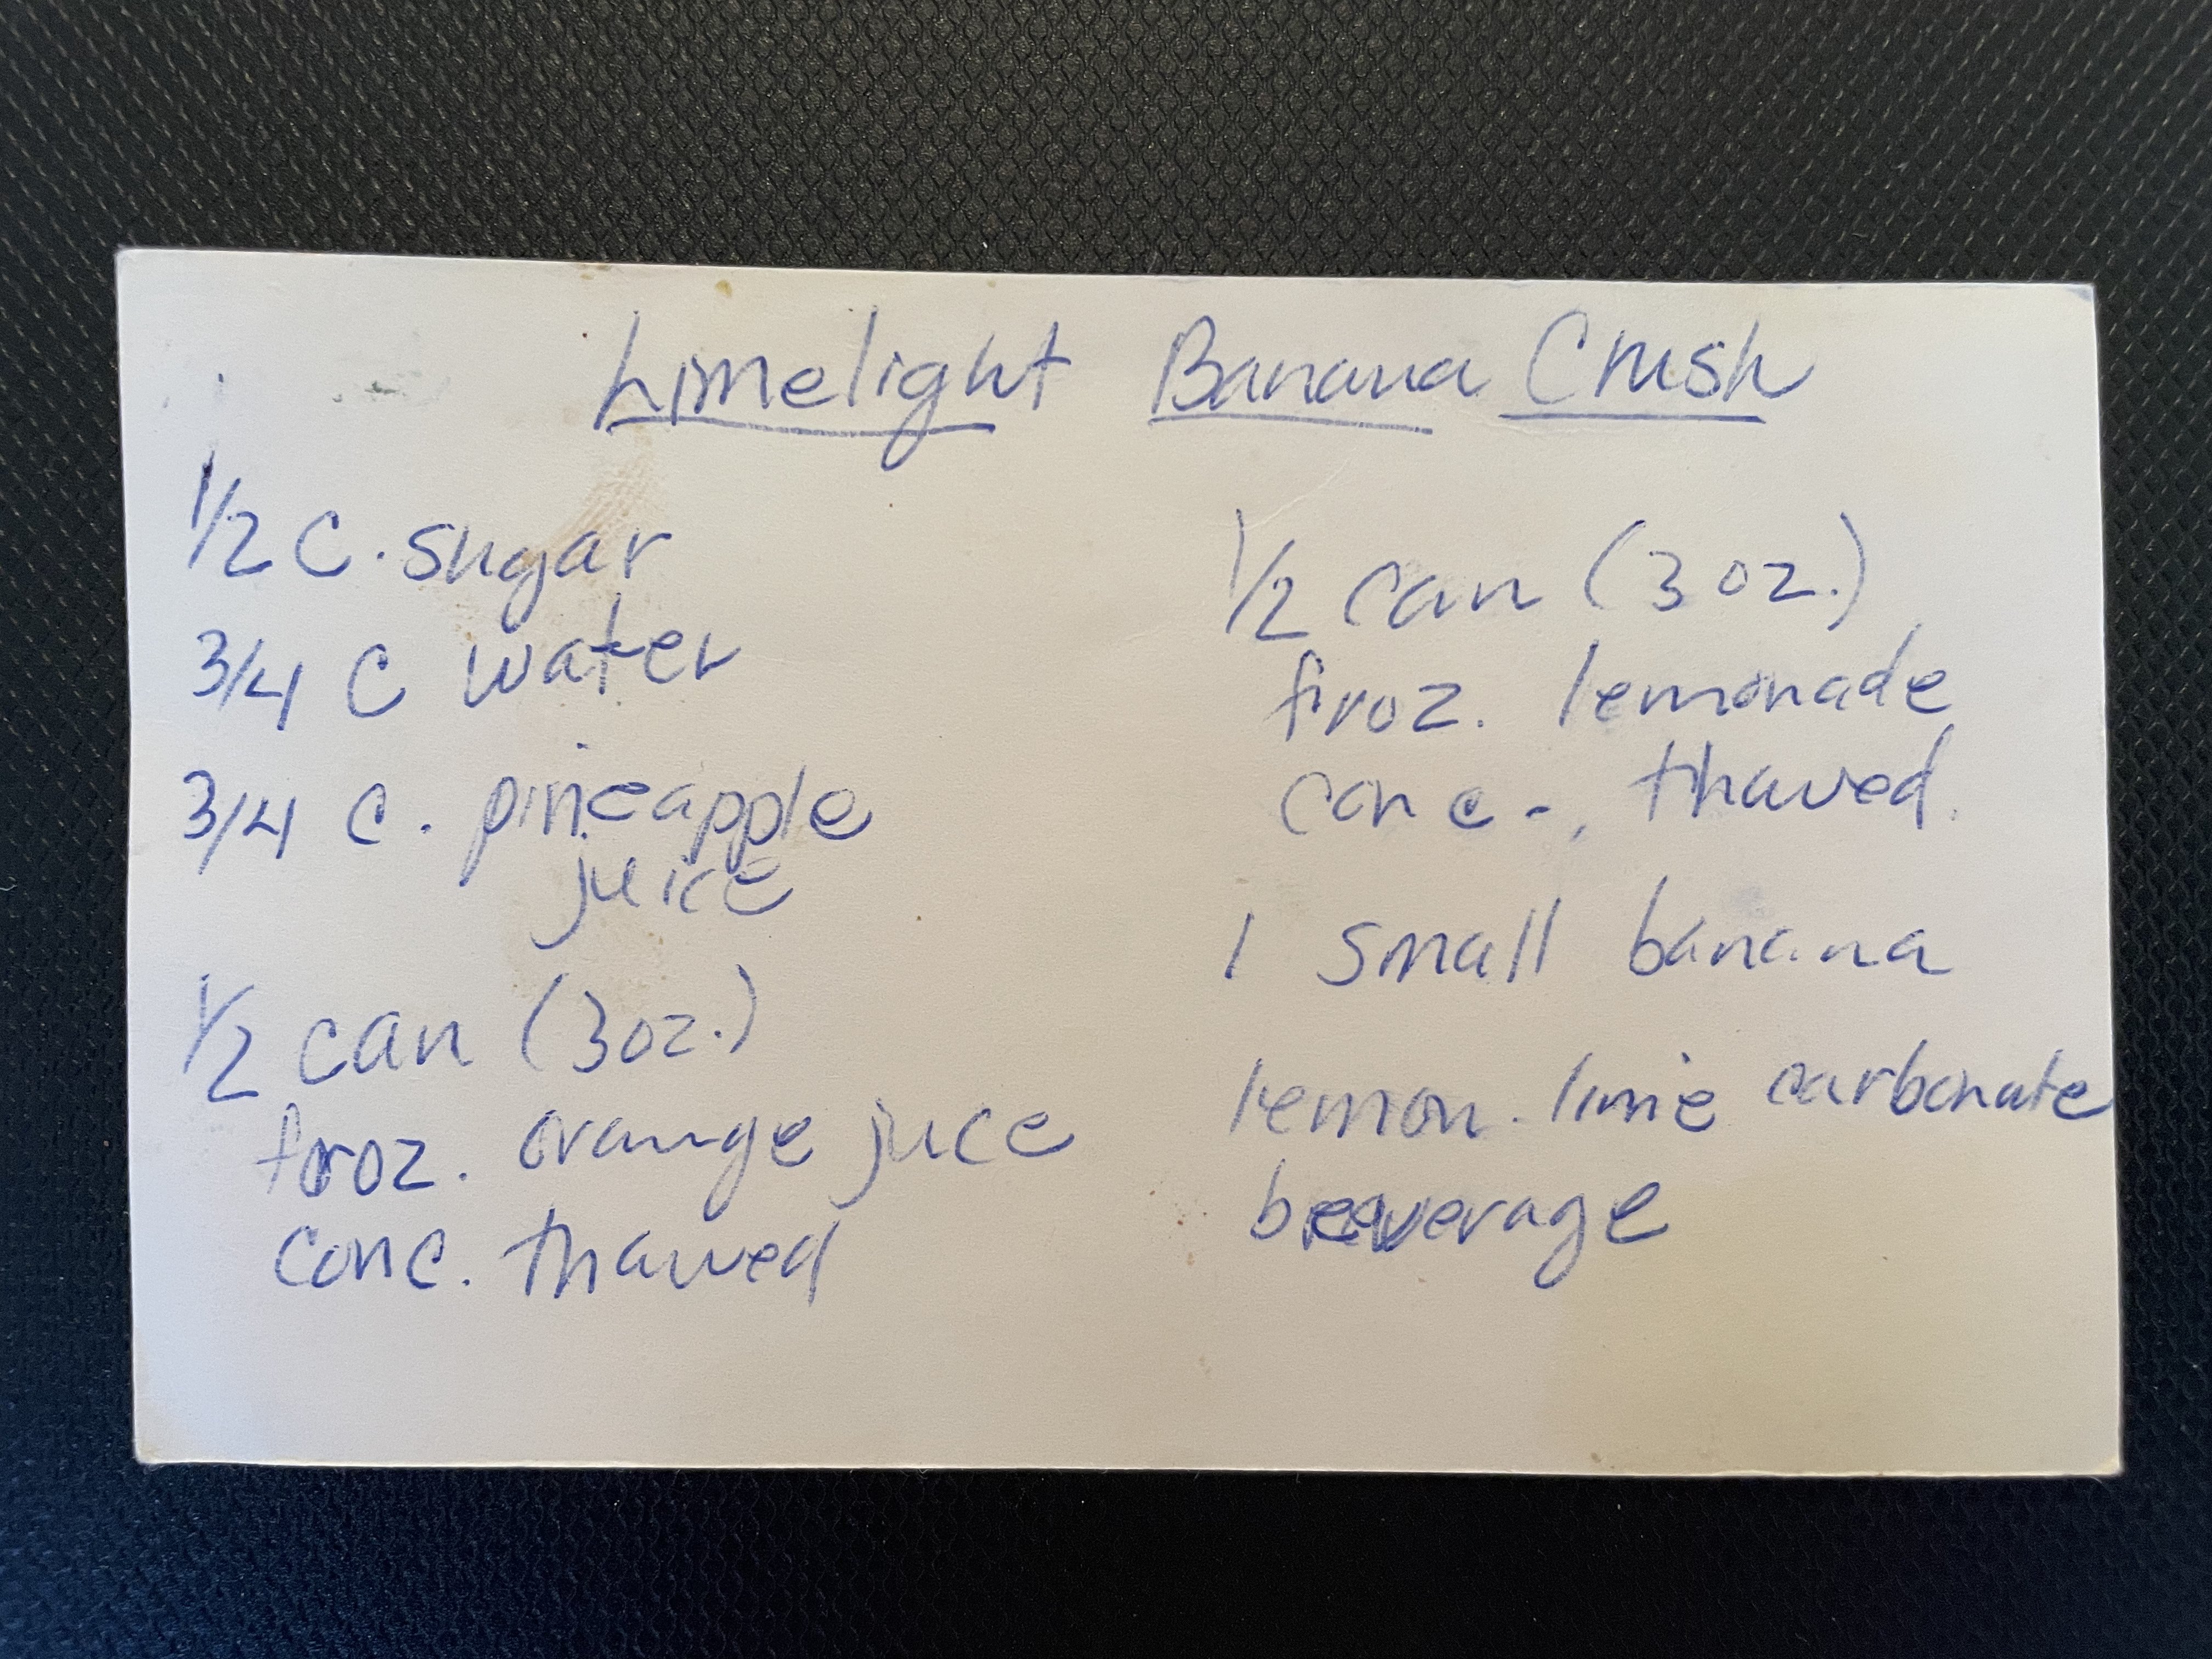 Limelight Banana Crush
1/2 C. sugar
3/4 C water
3/4 C. pineapple
juice
1/2 can (3oz.)
froz. orange juce
conc. thawed
1/2 can (3 oz.)
froz. lemonade
conc-, thawed.
1 small banana
lemon-lime carbonate
beverage